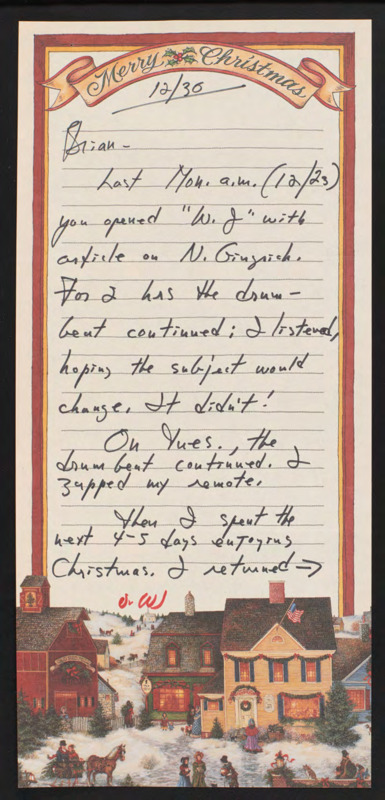 Merry Christmas
12/30
Brian-
Last Mon. a.m. (12/23)
you opened "W. J" with
article on N. Gingrich.
For 2 hrs the drum-
beat continued; I listened,
hoping the subject would
change. It didn't!
On Tues., the
drumbeat continued. I
zapped my remote.
Then I spent the
next 4-5 days enjoying
Christmas. I returned →
J. W